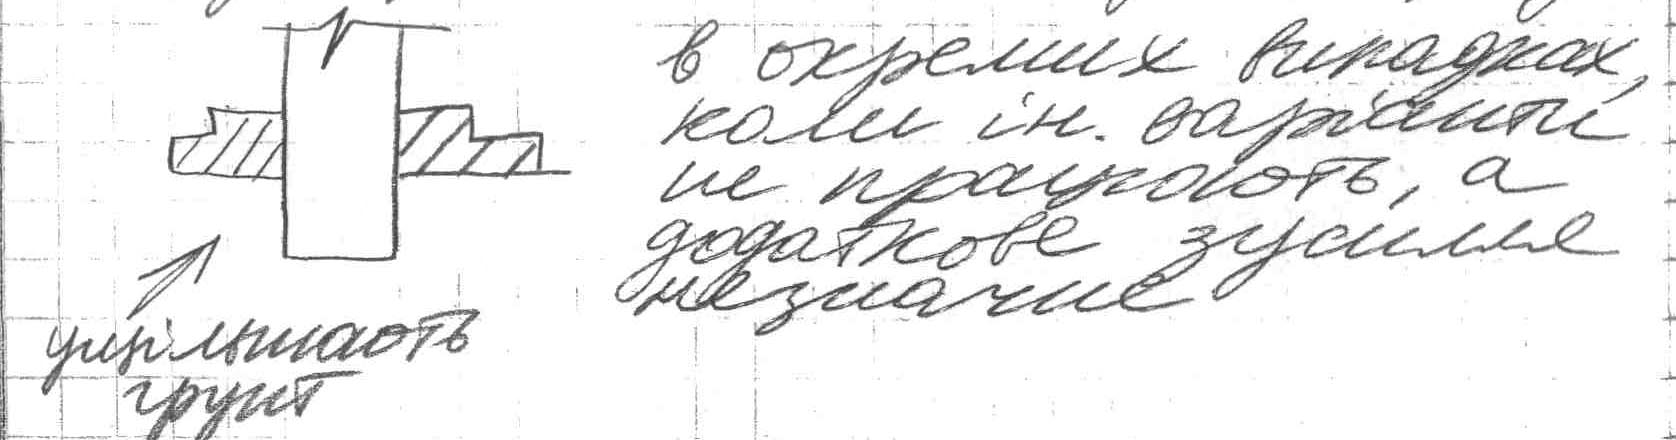 в окремих випадках,
коли ін. варіанти
не працюють, а
додаткове зусилля
незначне
ущільнюють
грунт